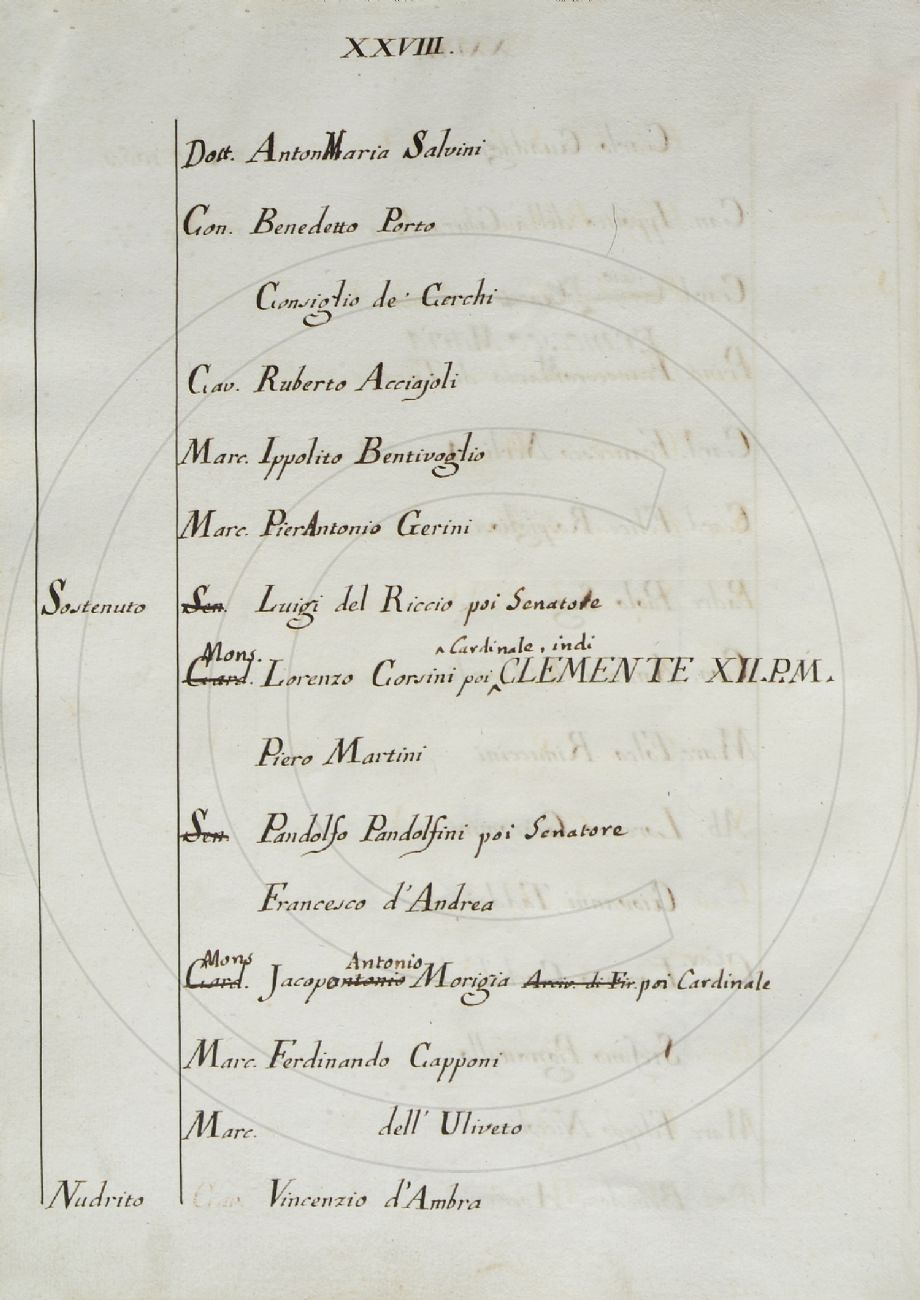 XXVIII.
Dott. AntonMaria Salvini
Can. Benedetto Porto
Consiglio de' Cerchi
Cav. Ruberto Acciajoli
Marc. Ippolito Bentivoglio
Marc. PierAntonio Gerini
Sostenuto Sen. Luigi del Riccio poi Senatore
Mons. Cardinale, indi
Card. Lorenzo Corsini poi CLEMENTE XII.P.M.
Piero Martini
Sen. Pandolfo Pandolfini poi Senatore
Francesco d'Andrea
Mons Antonio
Card. Jacopantonio Morigia Arciv. di Fir. poi Cardinale
Marc. Ferdinando Capponi
Marc. dell' Uliveto
Nudrito Cav. Vincenzio d'Ambra